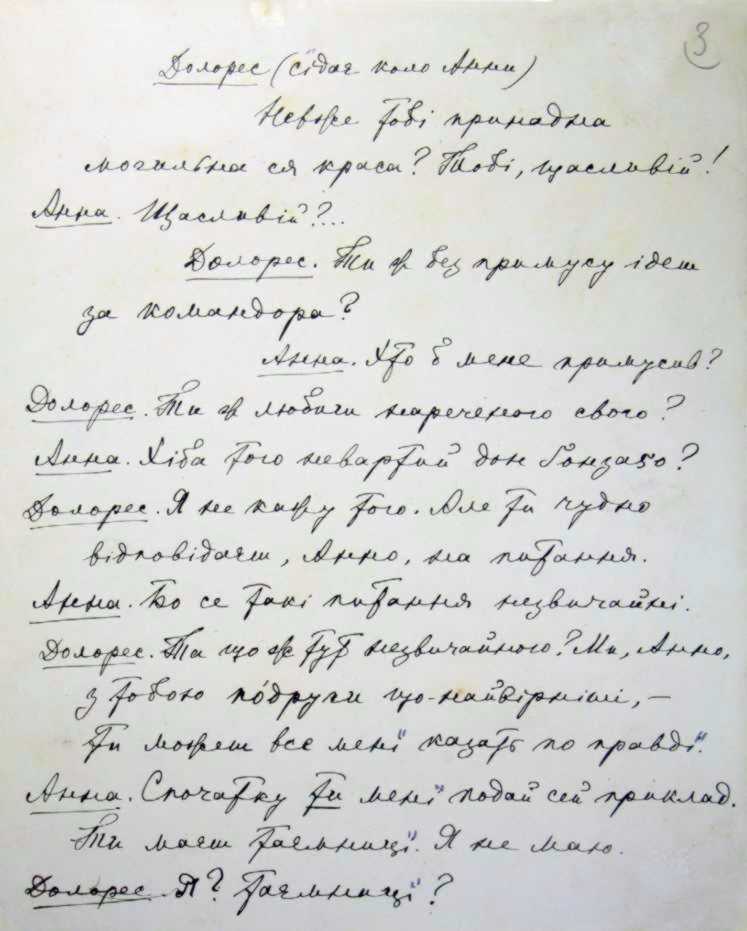 3
Долорес (сідає коло Анни)
Невже тобі принадна
могильна ся краса? Тобі, щасливій!
Анна. Щасливій?..
Долорес. Ти ж без примусу ідеш
за командора?
Анна. Хто б мене примусив?
Долорес. Ти ж любиш нареченого свого?
Анна. Хіба того невартий дон Ґонзаґо?
Долорес. Я не кажу того. Але ти чудно
відповідаєш, Анно, на питання.
Анна. Бо се такі питання незвичайні.
Долорес. Та що ж тут незвичайного? Ми, Анно,
з тобою по́други що-найвірніші, –
ти можеш все мені казать по правді.
Анна. Спочатку ти мені подай сей приклад.
Ти маєш таємниці. Я не маю.
Долорес. Я? Таємниці?